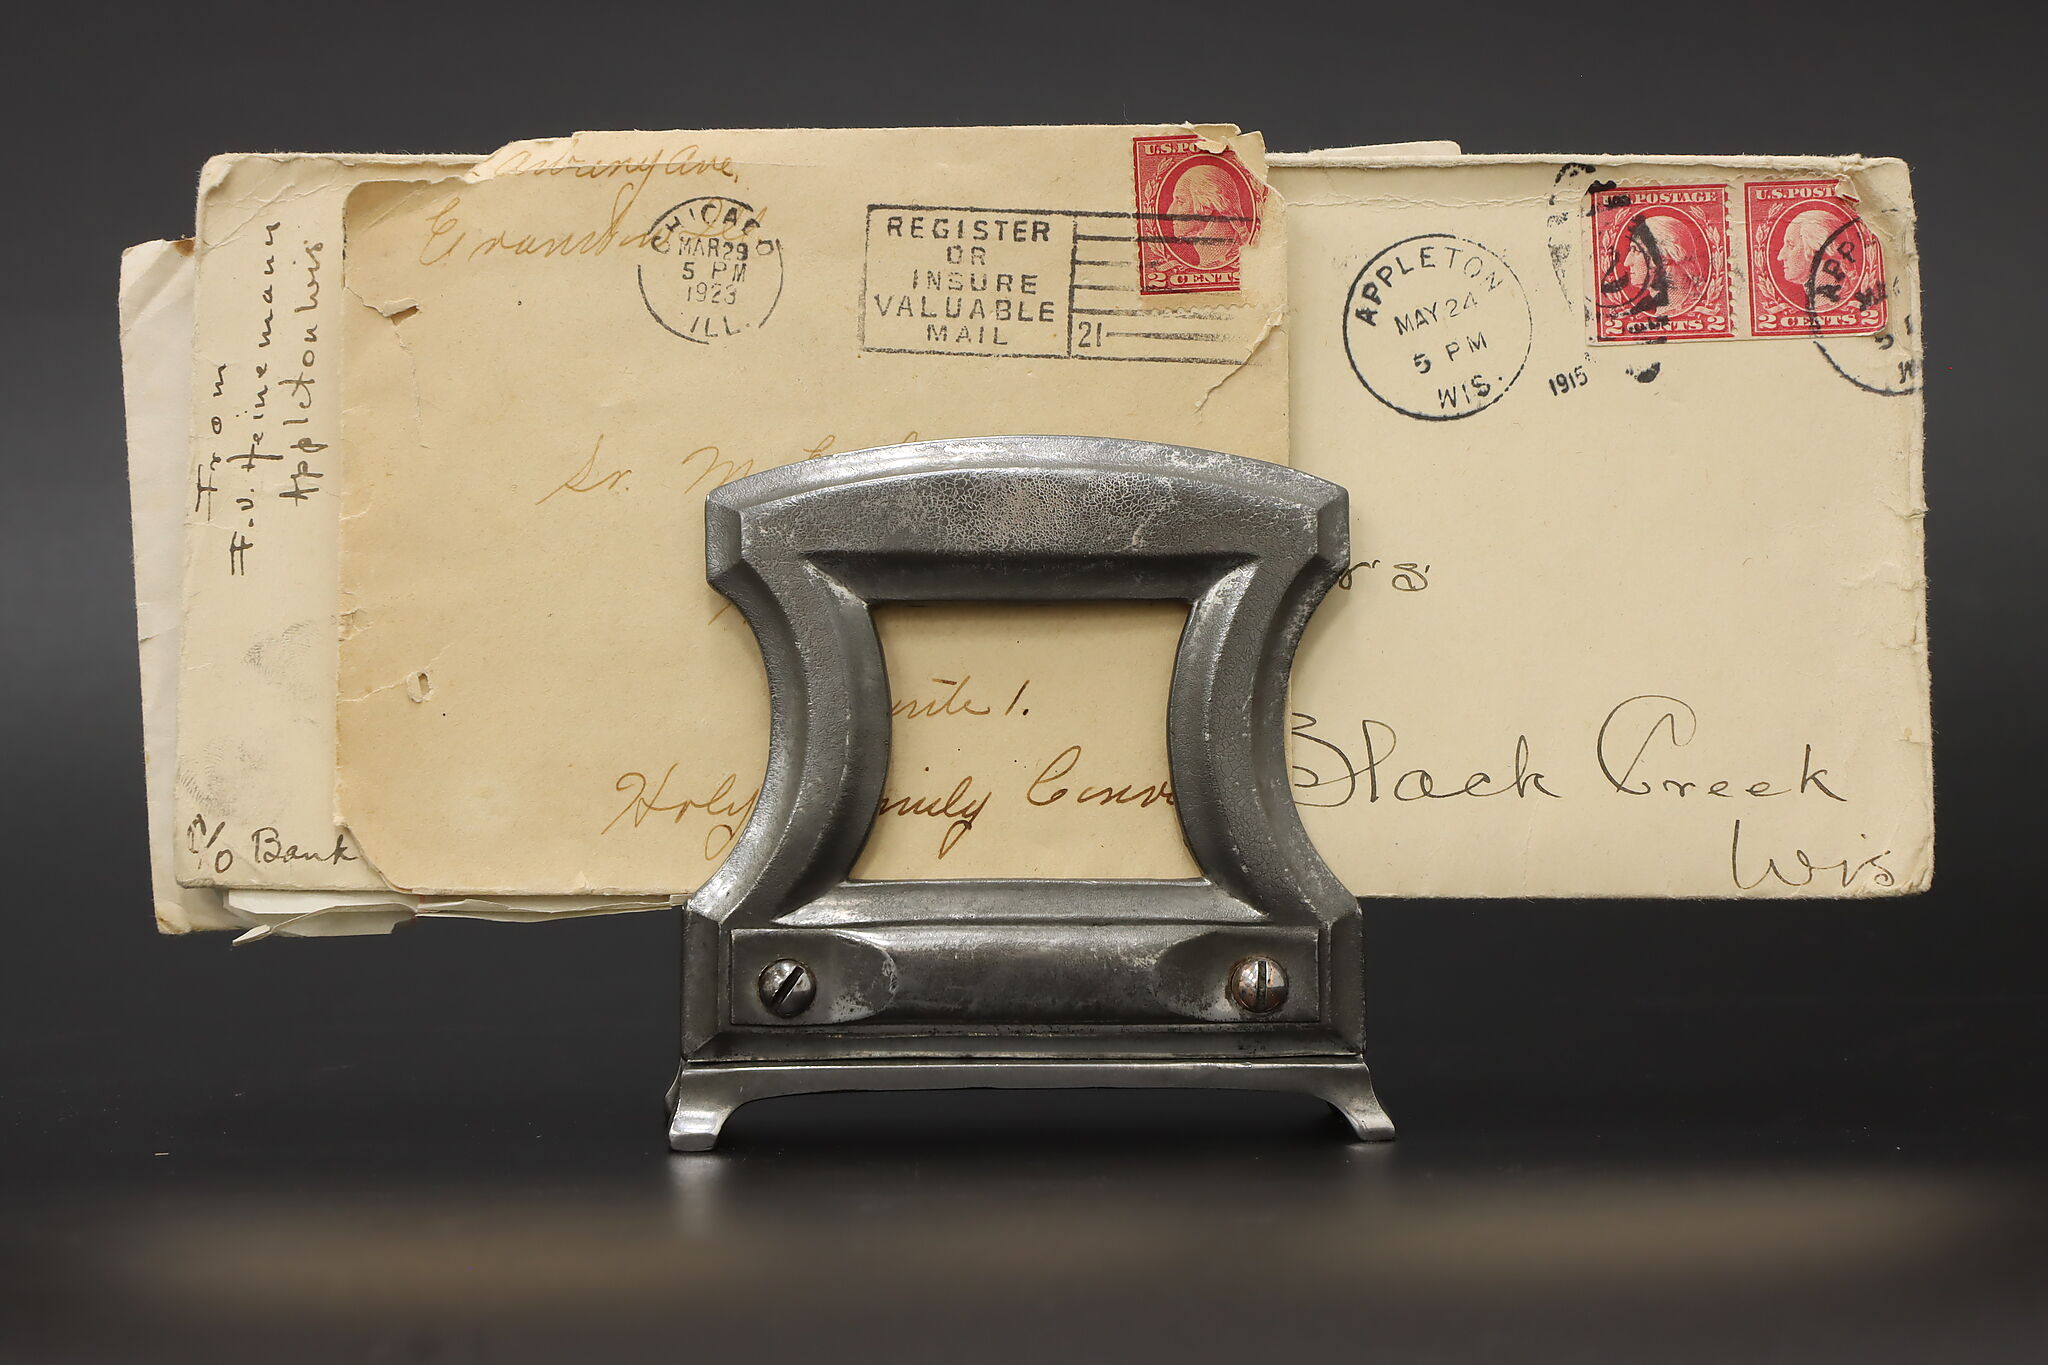 From
F.V. Heinemann
Appleton Wis
% Bank
Ave.
CHICAGO
MAR 29
5 PM
1923
ILL.
REGISTER
OR
INSURE
VALUABLE
MAIL
21
U.S. PO
2 CENTS
Sr. M
1.
Holy mily Conv
APPLETON
MAY 24
5 PM
WIS.
1915
U.S. POSTAGE
2 CENTS 2
U.S. POST
2 CENTS 2
APP
rs
Black Creek
Wis